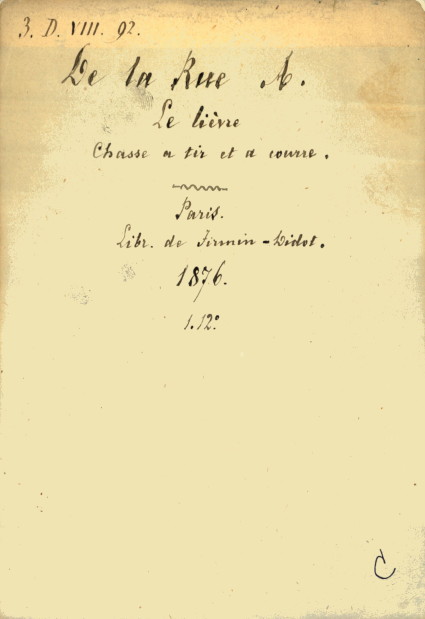 3. D. VIII. 92.
De la Rue A.
Le lièvre
Chasse a tir et a courre.
Paris.
Libr. de Firmin-Didot.
1876.
1.12°
C